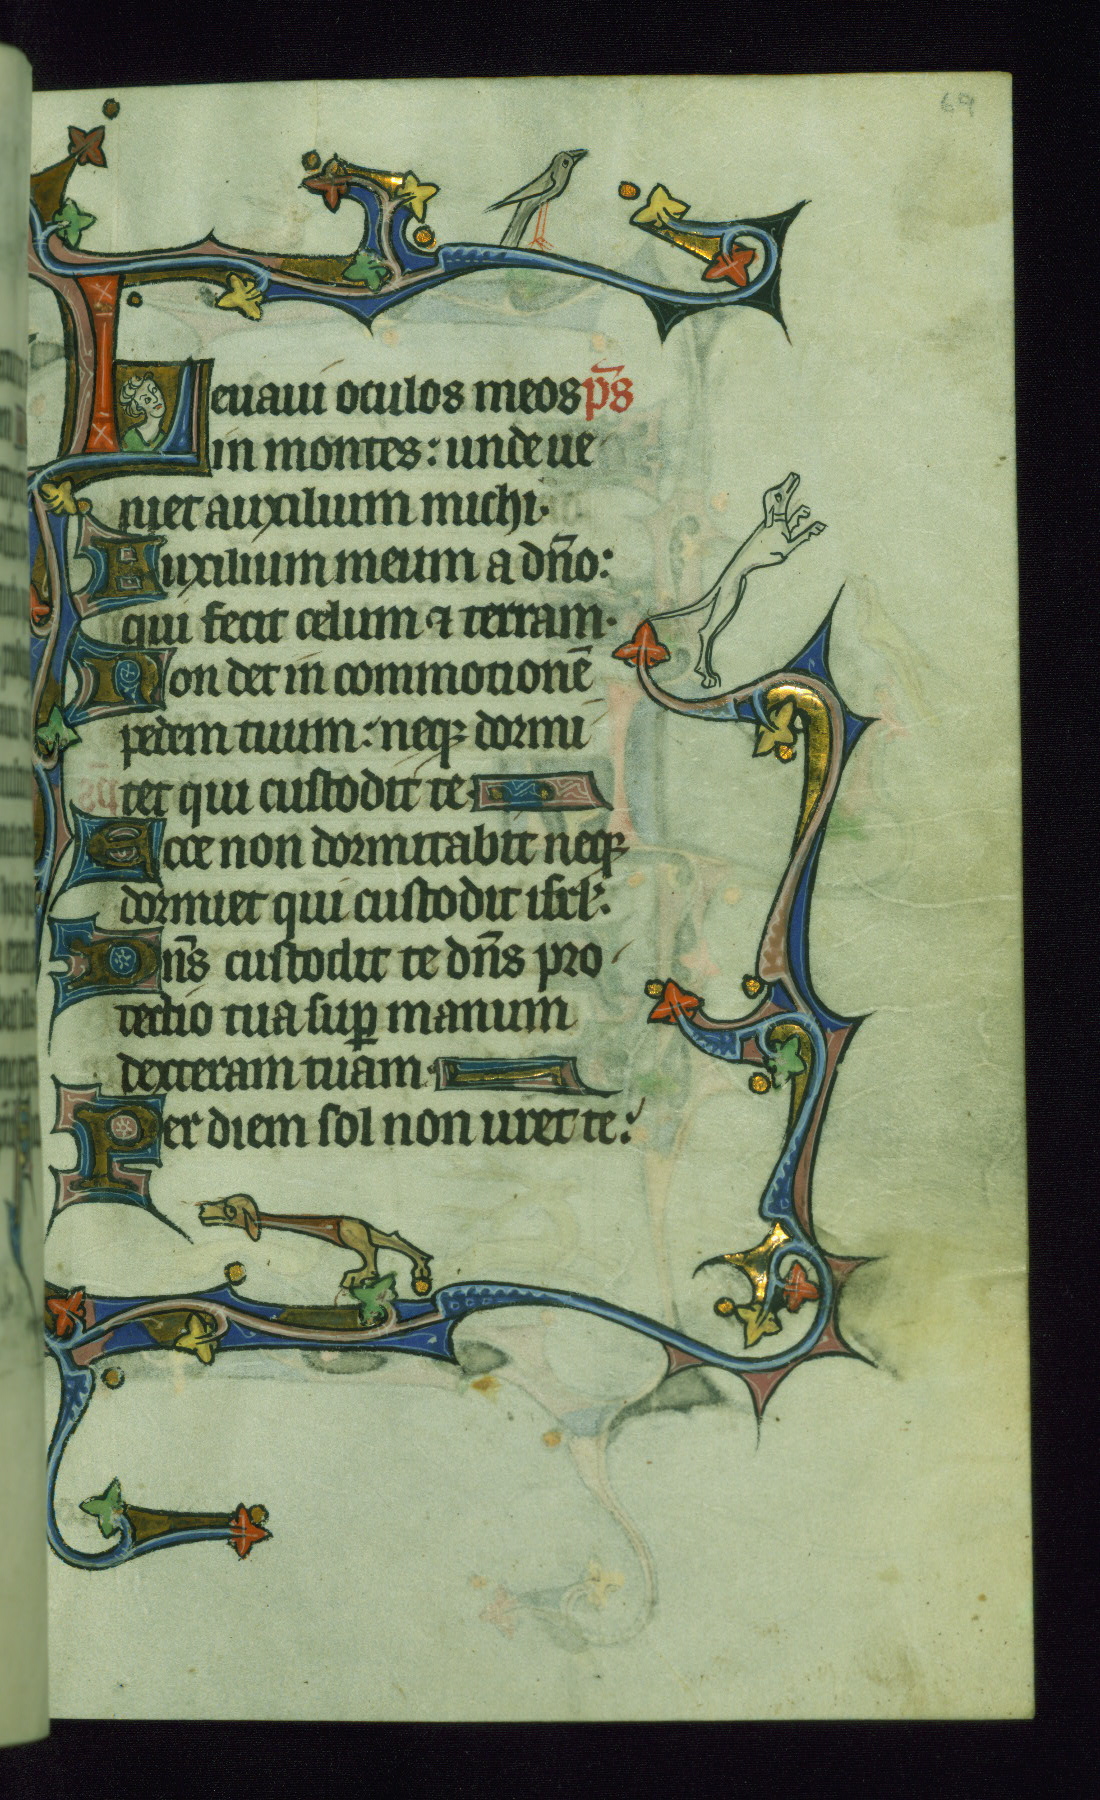 69
Leuaui oculos meos p̄s
in montes: unde ue
niet auxilium michi.
Auxilium meum a dn̄o:
qui fecit celum ⁊ terram.
Non det in commotionē
pedem tuum: neqꝫ dormi
tet qui custodit te
Ecce non dormitabit neqꝫ
dormiet qui custodit isrl̄.
Dn̄s custodit te dn̄s pro
tectio tua suꝑ manum
dexteram tuam
Per diem sol non uret te: